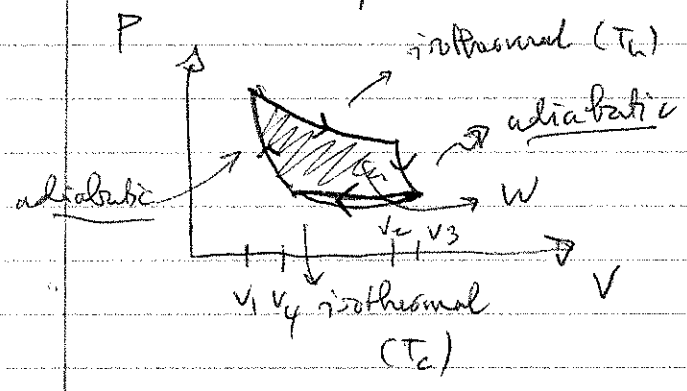 P
isothermal (Th)
adiabatic
adiabatic
W
V1 V4 V2 V3
V
isothermal
(Tc)